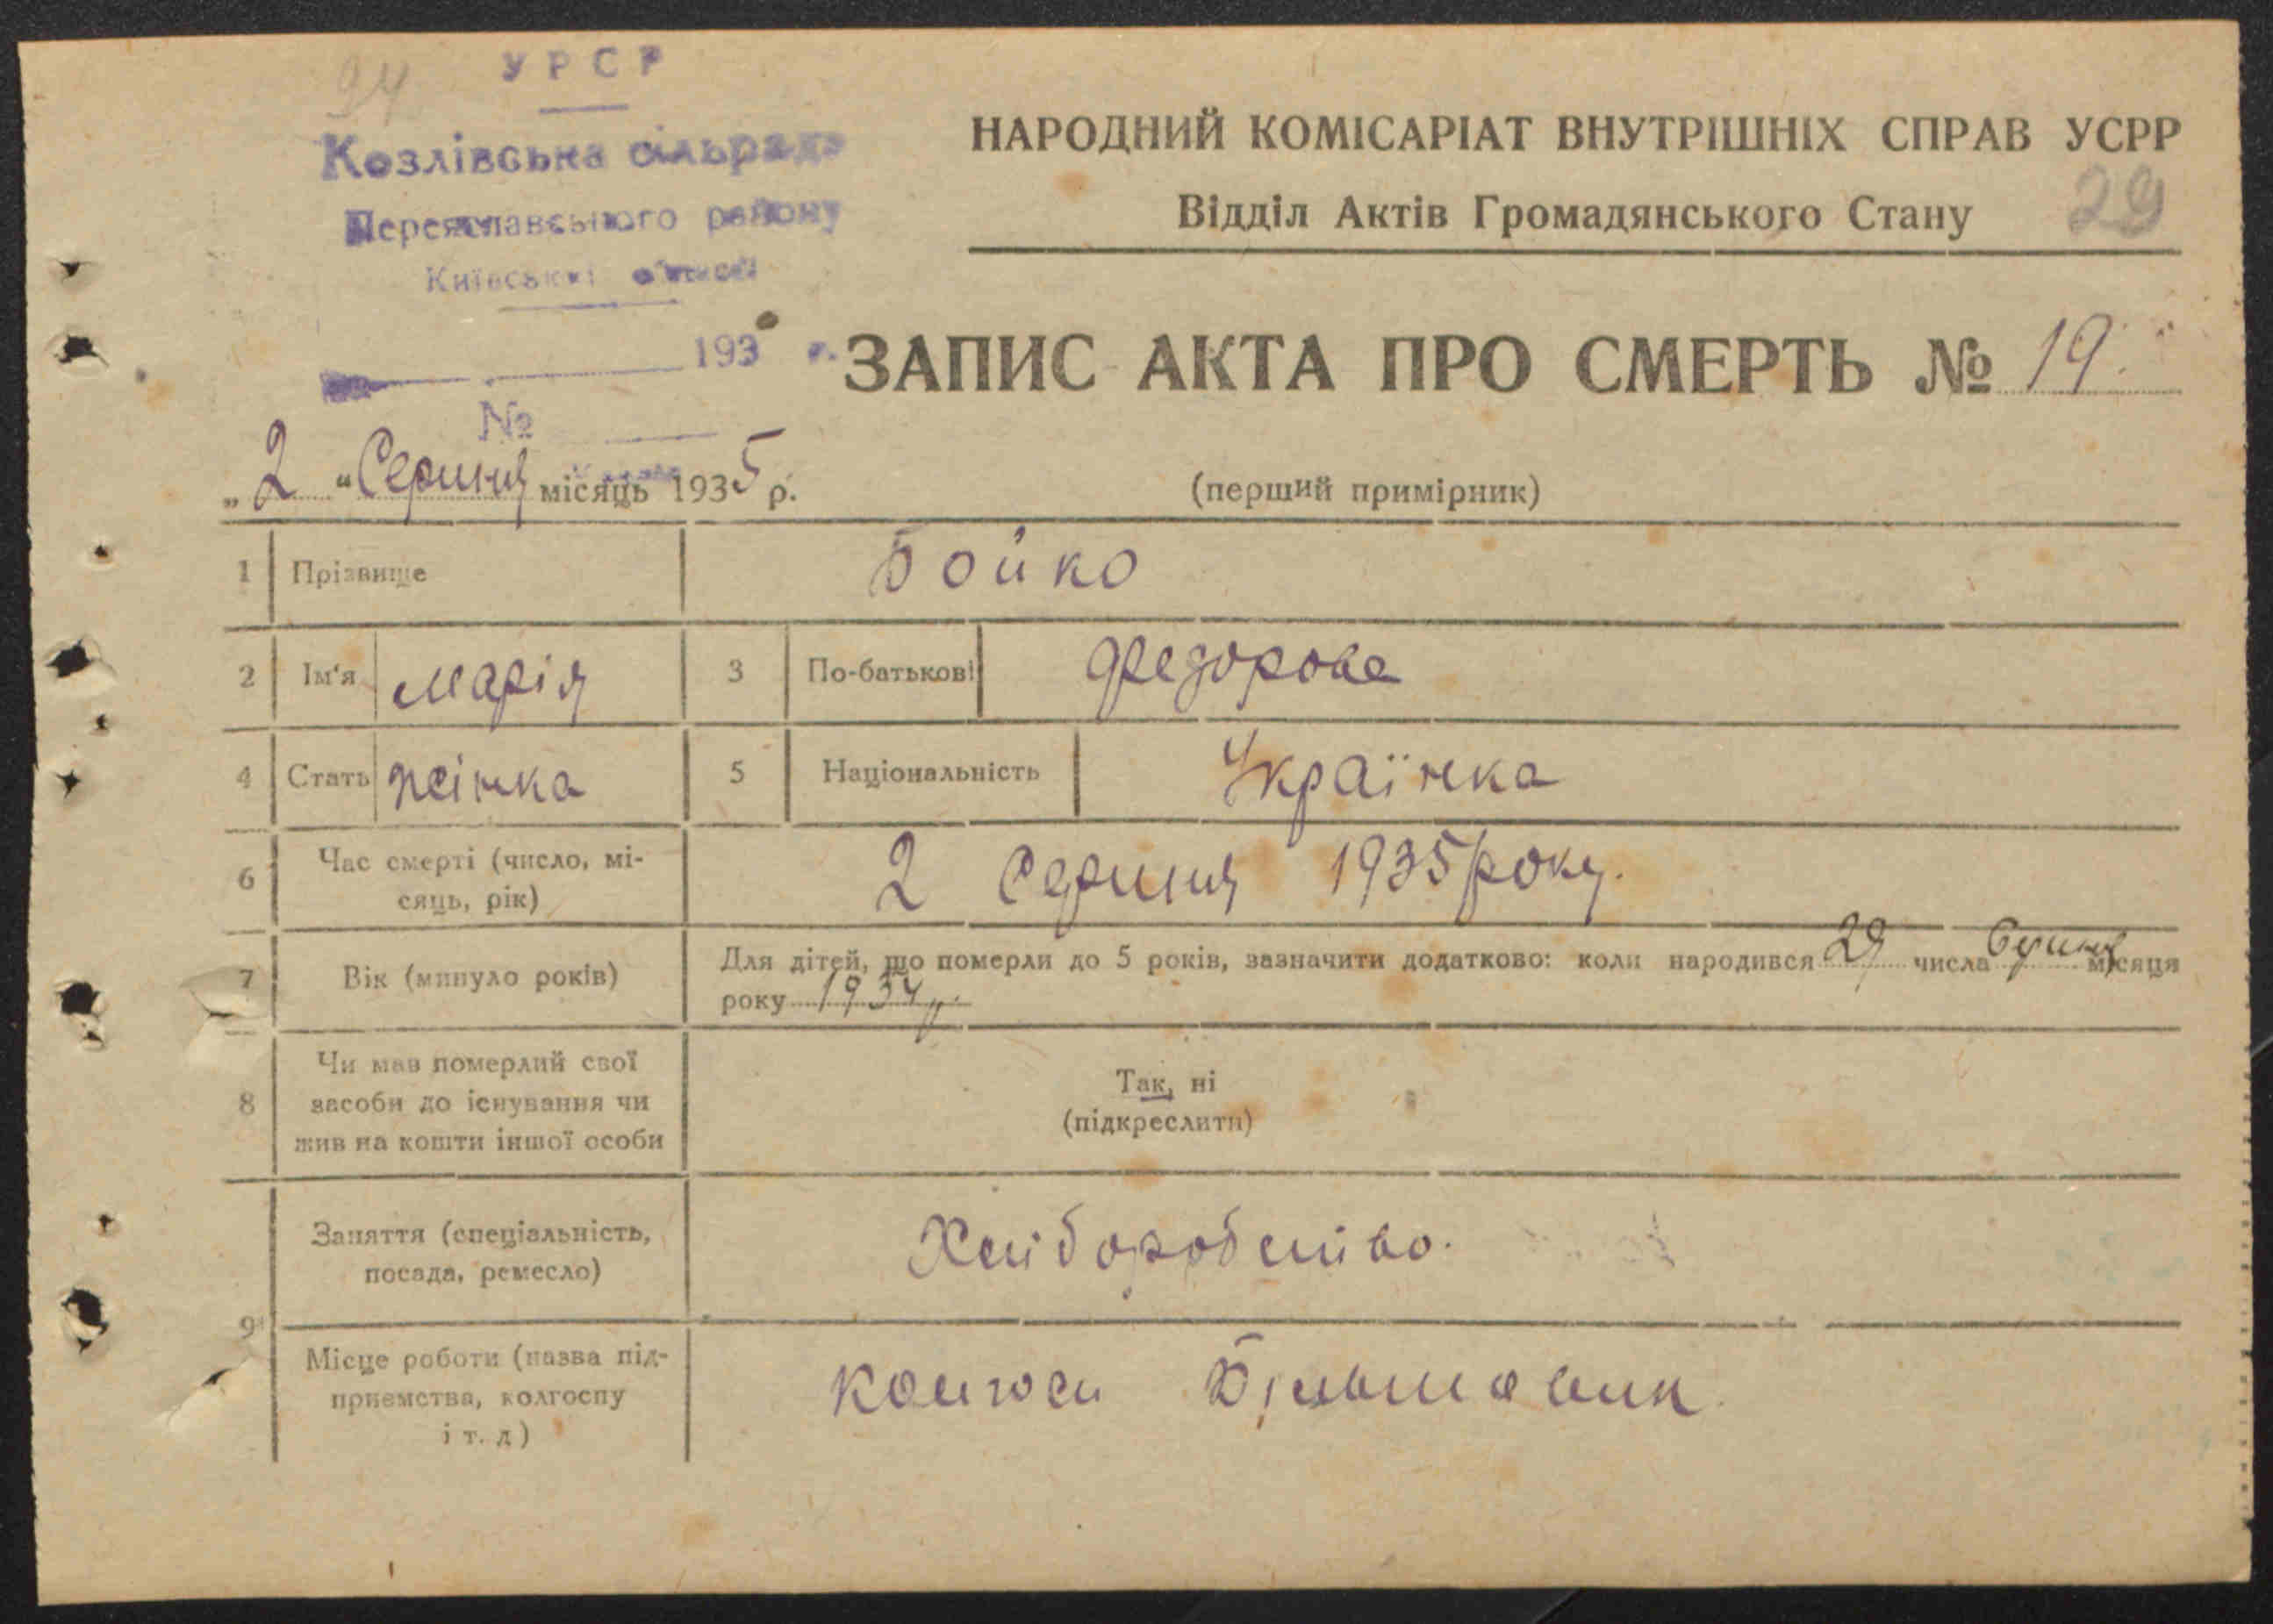 94
УРСР
Козлівська сільрада
Переяславського району
Київської області
193 р.
№
НАРОДНИЙ КОМІСАРІАТ ВНУТРІШНІХ СПРАВ УСРР
Відділ Актів Громадянського Стану
29
ЗАПИС АКТА ПРО СМЕРТЬ № 19.
„ 2 “ Серпня місяць 1935 р.
(перший примірник)
1 Прізвище Бойко
2 Ім'я Марія 3 По-батькові Федорова
4 Стать жінка 5 Національність Українка
6 Час смерті (число, мі-
сяць, рік)
2 Серпня 1935 року.
7 Вік (минуло років)
Для дітей, що померли до 5 років, зазначити додатково: коли народився 29 числа Серпня місяця
року 1934 р.
8 Чи мав померлий свої
засоби до існування чи
жив на кошти іншої особи
Так, ні
(підкреслити)
9
Заняття (спеціальність,
посада, ремесло)
Хліборобство.
Місце роботи (назва під-
приємства, колгоспу
і т. д)
колгосп Більшовик